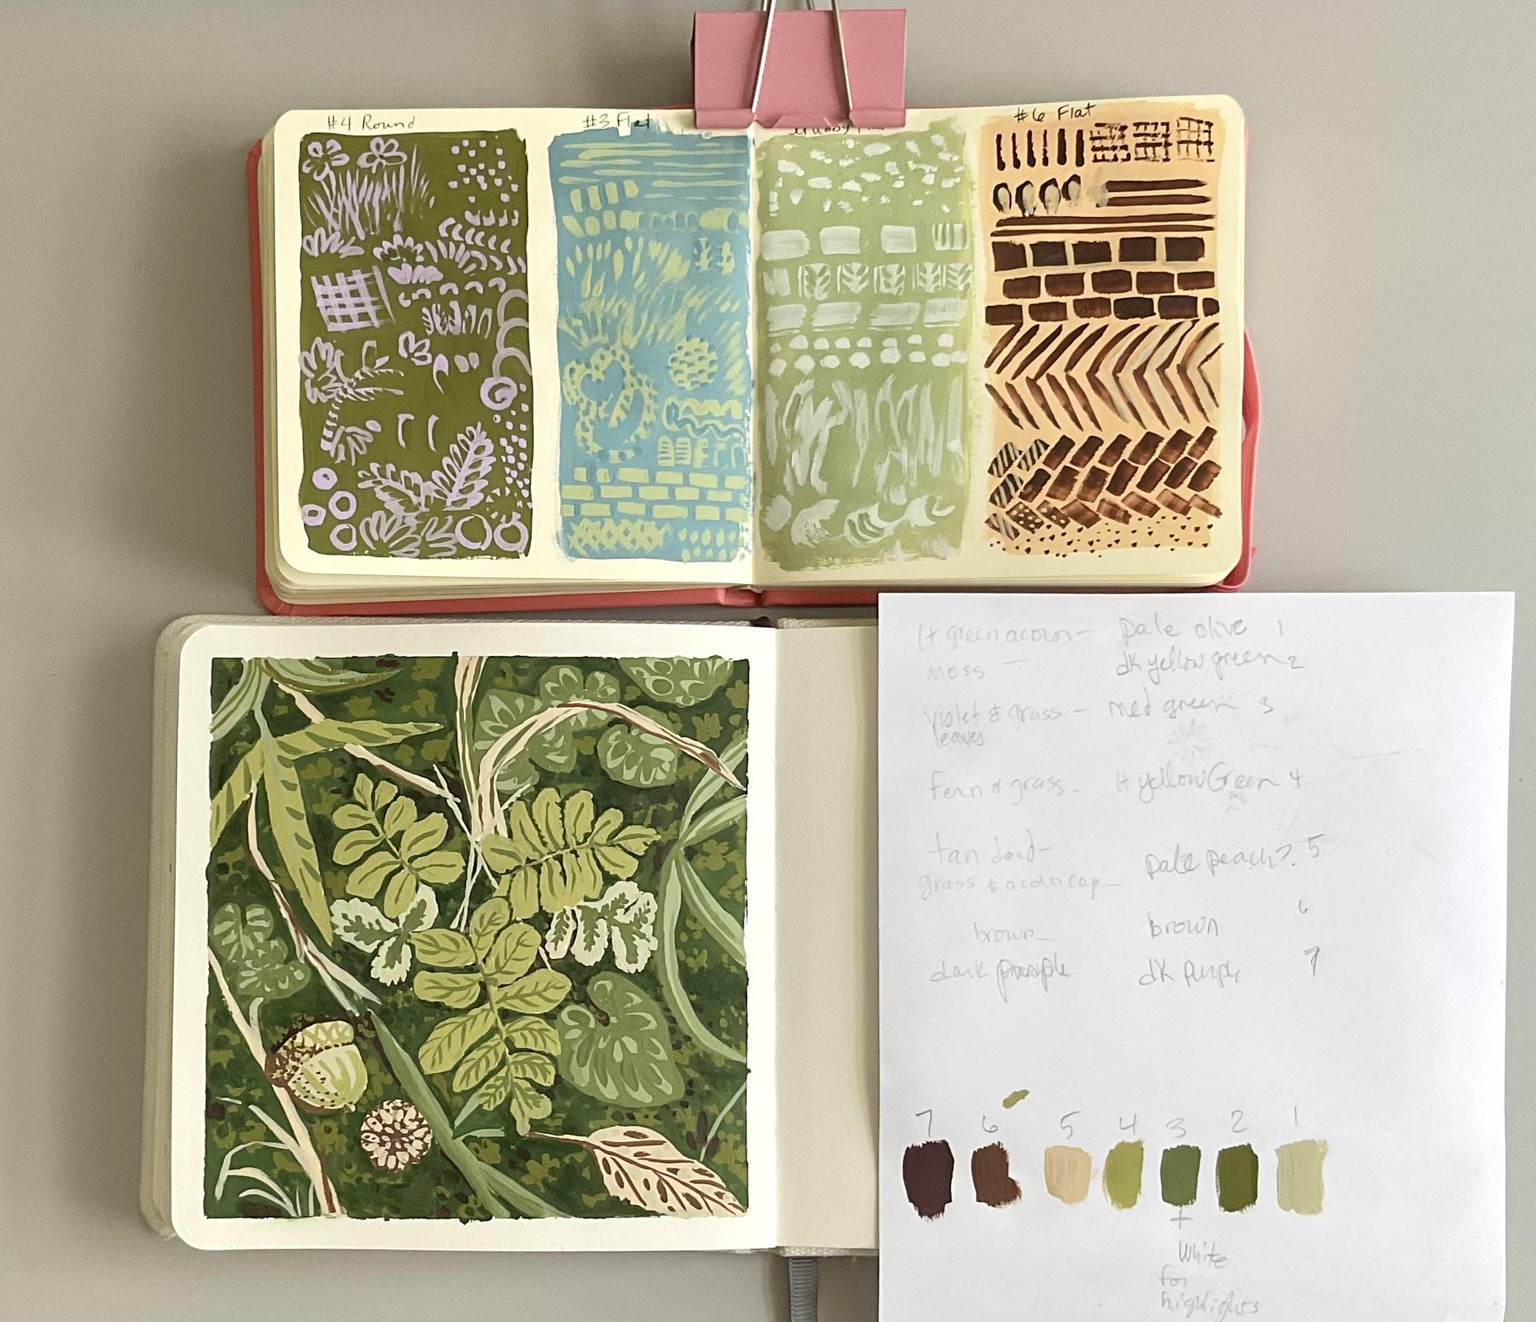 #4 Round
#3 Flat
#6 Flat
lt green acorn – pale olive 1
moss – dk yellow green 2
violet & grass – med green 3
leaves
fern & grass – lt yellow Green 4
tan dead –
grass & acorn cap – pale peach?. 5
6
brown – brown
dark purple dk purple 7
7 6 5 4 3 2 1
+
White
for
highlights